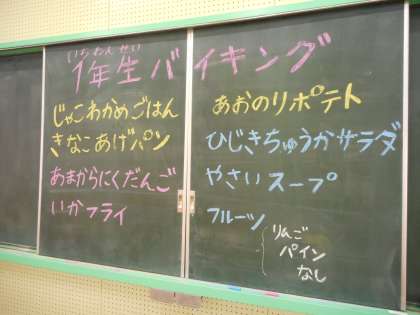 いちねんせい
1年生バイキング
じゃこわかめごはん
きなこあげパン
あまからにくだんご
いかフライ
あおのりポテト
ひじきちゅうかサラダ
やさいスープ
フルーツ
りんご
パイン
なし